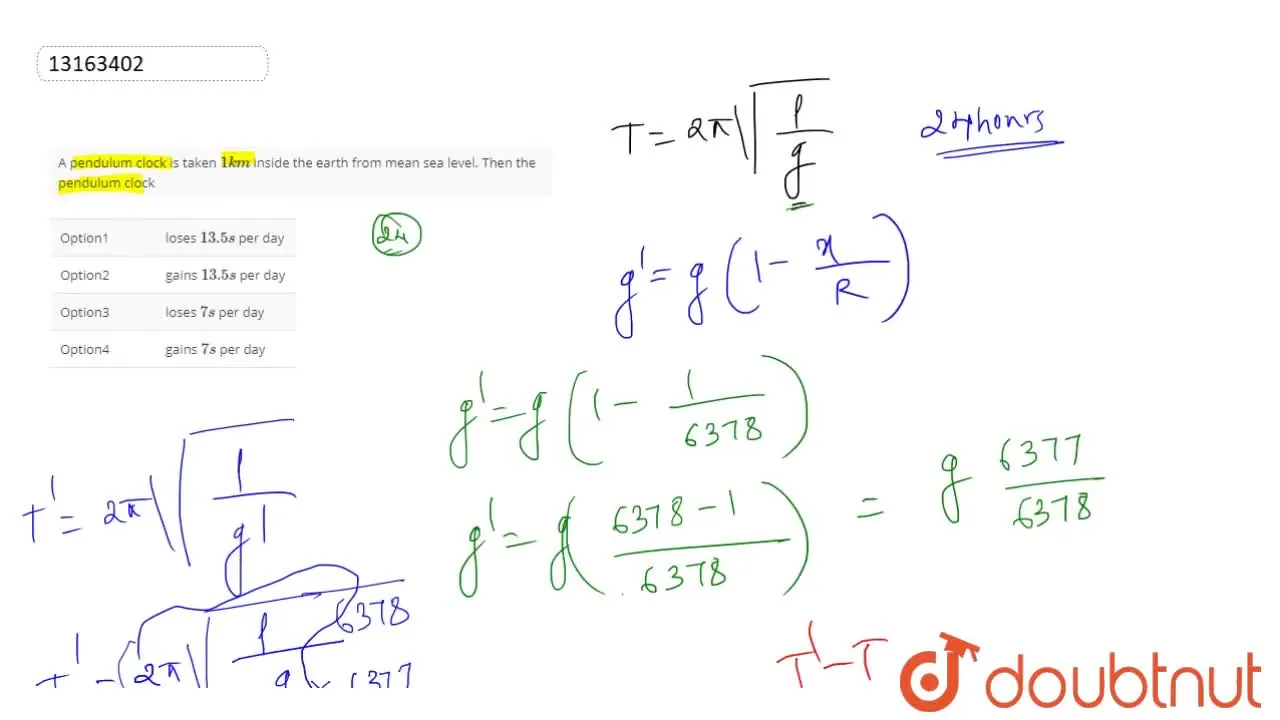 13163402
A pendulum clock is taken 1km inside the earth from mean sea level. Then the
pendulum clock
Option1 loses 13.5s per day
Option2 gains 13.5s per day
Option3 loses 7s per day
Option4 gains 7s per day
24
T = 2π√(l/g)
24hours
g' = g(1 - x/R)
g' = g(1 - 1/6378)
g' = g(6378 - 1/6378) = g 6377/6378
T' = 2π√(l/g')
T' - (2π√(l/g × 6378/6377
T' - T
doubtnut